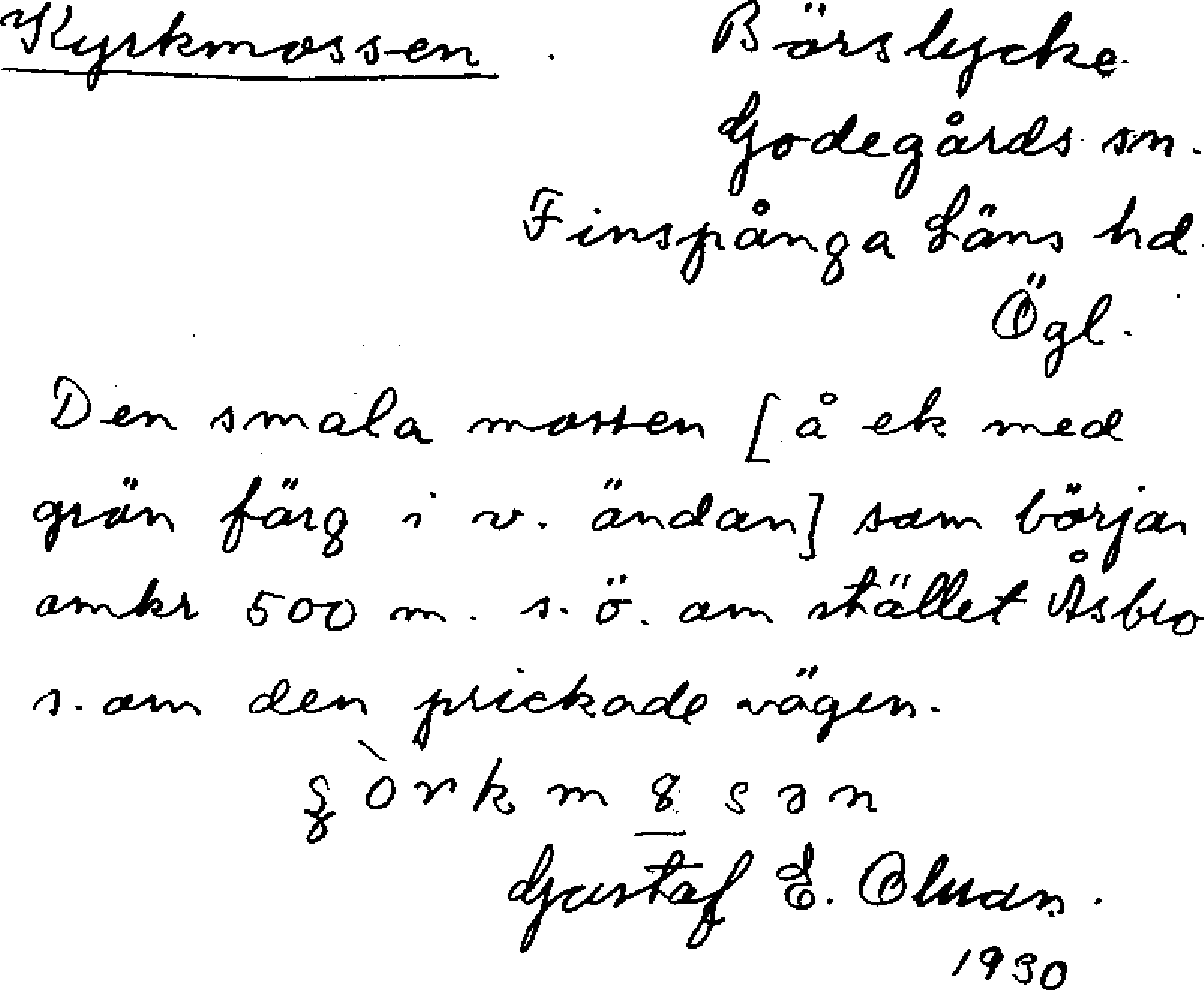 Kyrkmossen. Börslycke
Godegårds sn.
Finspånga Läns hd.
Ögl.
Den smala mossen [å ek med
grön färg i v. ändan] som börjar
omkr 500 m. s.ö. om stället Åsbro
s. om den prickade vägen.
Gustaf E. Olsson.
1930